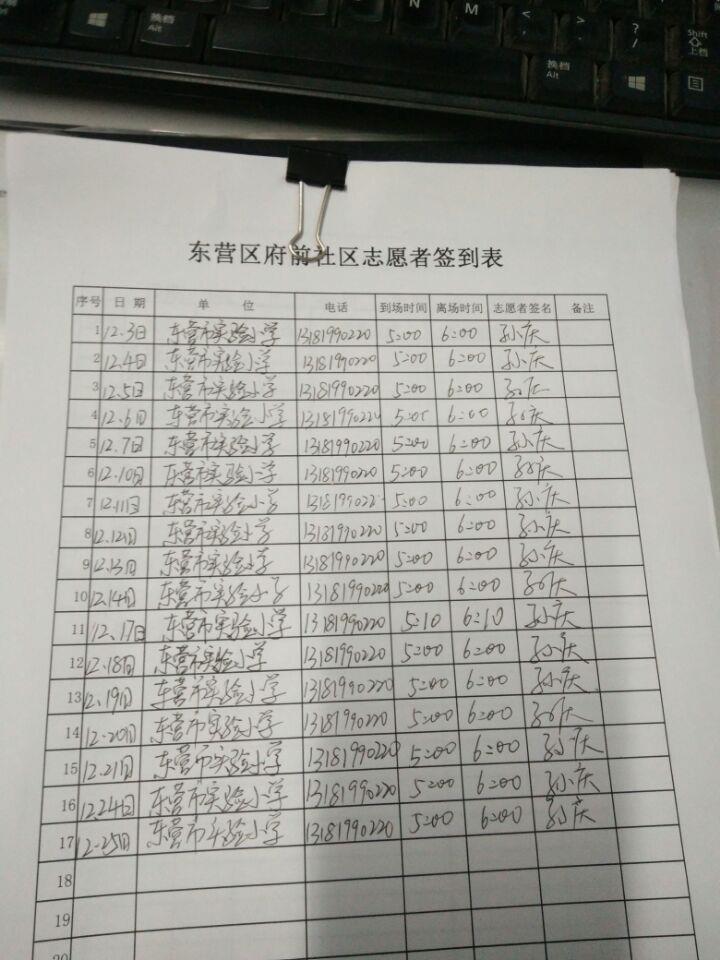 N
M
<
,
>
.
?
/
Shift
上档
换档
Alt
换档
Alt
东营区府前社区志愿者签到表
序号 日期 单位 电话 到场时间 离场时间 志愿者签名 备注
1 12.3日 东营市实验小学 13181990220 5:00 6:00 孙庆
2 12.4日 东营市实验小学 13181990220 5:00 6:00 孙庆
3 12.5日 东营市实验小学 13181990220 5:00 6:00 孙庆
4 12.6日 东营市实验小学 13181990220 5:00 6:00 孙庆
5 12.7日 东营市实验小学 13181990220 5:00 6:00 孙庆
6 12.10日 东营市实验小学 13181990220 5:00 6:00 孙庆
7 12.11日 东营市实验小学 13181990220 5:00 6:00 孙庆
8 12.12日 东营市实验小学 13181990220 5:00 6:00 孙庆
9 12.13日 东营市实验小学 13181990220 5:00 6:00 孙庆
10 12.14日 东营市实验小学 13181990220 5:00 6:00 孙庆
11 12.17日 东营市实验小学 13181990220 5:10 6:10 孙庆
12 12.18日 东营市实验小学 13181990220 5:00 6:00 孙庆
13 12.19日 东营市实验小学 13181990220 5:00 6:00 孙庆
14 12.20日 东营市实验小学 13181990220 5:00 6:00 孙庆
15 12.21日 东营市实验小学 13181990220 5:00 6:00 孙庆
16 12.24日 东营市实验小学 13181990220 5:00 6:00 孙庆
17 12.25日 东营市实验小学 13181990220 5:00 6:00 孙庆
18
19
20